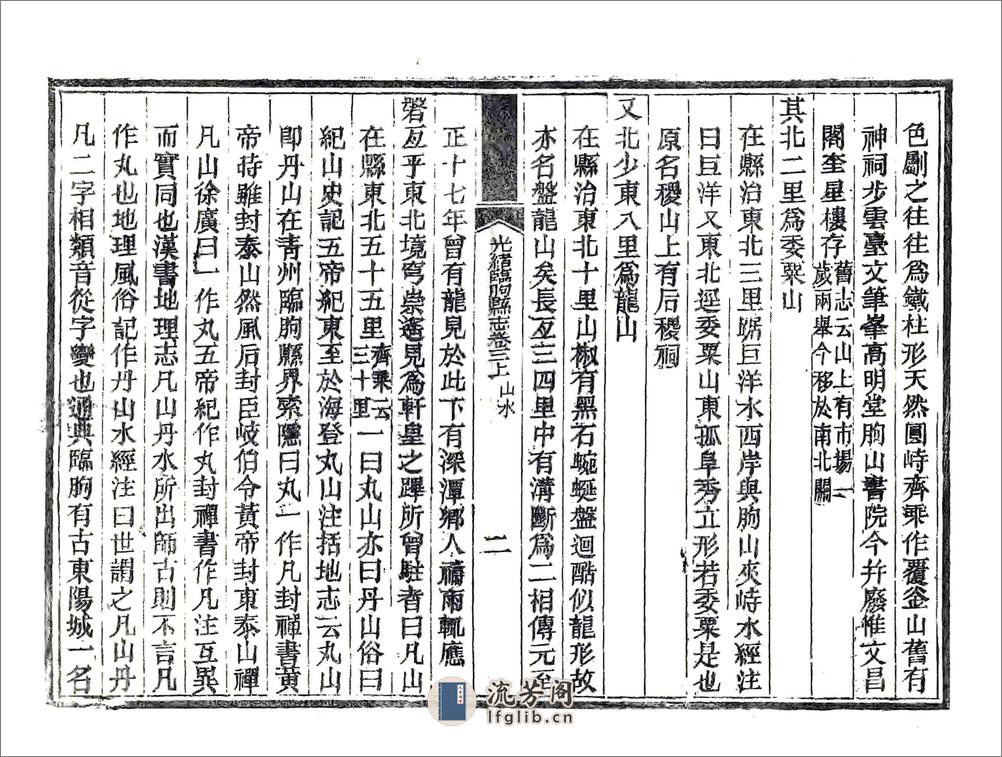 色劚之往往爲鐵杜形天然圓峙齊乘作覆釜山舊有
神祠步雲臺文筆峯高明堂朐山書院今幷廢惟文昌
閣奎星樓存舊志云山上有市場一
歲兩舉今移於南北關
其北二里爲委粟山
在縣治東北三里踞巨洋水西岸與朐山夾峙水經注
曰巨洋又東北逕委粟山東孤阜秀立形若委粟是也
原名稷山上有后稷祠
又北少東八里爲龍山
在縣治東北十里山椒有黑石蜿蜒盤迴酷似龍形故
亦名盤龍山矣長亙三四里中有溝斷爲二相傳元至
光緒臨朐縣志卷三上 山水 二
正十七年曾有龍見於此下有深潭鄉人禱雨輒應
磐亙乎東北境穹崇遙見爲軒皇之蹕所曾駐者曰凡山
在縣東北五十五里齊乘云
三十里一曰丸山亦曰丹山俗曰
紀山史記五帝紀東至於海登丸山注括地志云丸山
卽丹山在靑州臨朐縣界索隱曰丸一作凡封禪書黃
帝時雖封泰山然風后封臣岐伯令黃帝封東泰山禪
凡山徐廣曰一作丸五帝紀作丸封禪書作凡注互異
而實同也漢書地理志凡山丹水所出師古則不言凡
作丸也地理風俗記作丹山水經注曰世謂之凡山丹
凡二字相類音從字變也通典臨朐有古東陽城一名
流芳阁
lfglib.cn